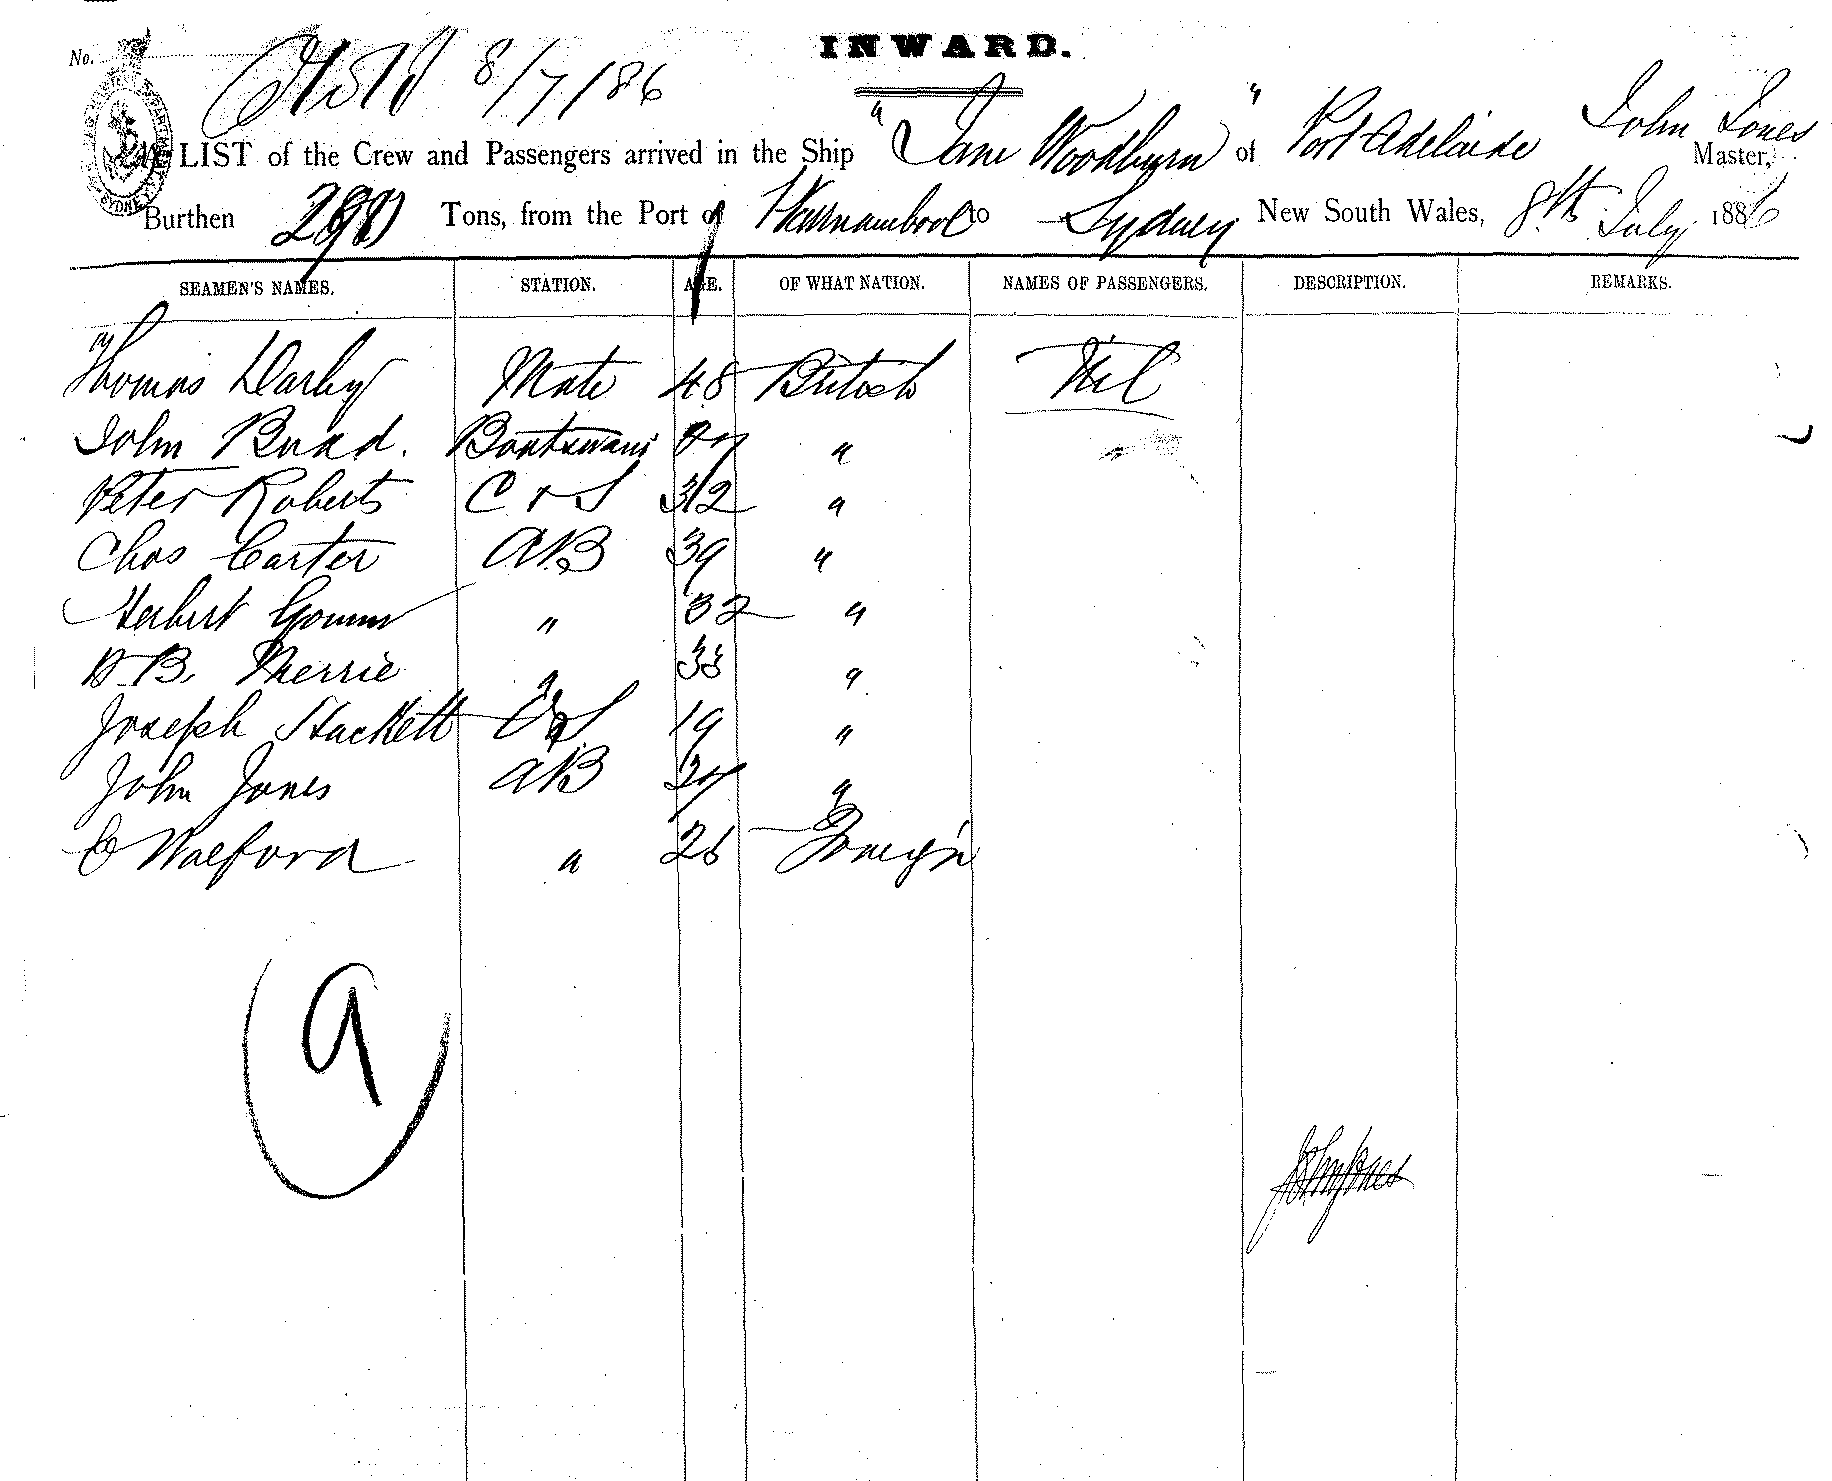 INWARD.
No. 8/7/86
A LIST of the Crew and Passengers arrived in the Ship "Jane Woodburn" of Port Adelaide John Jones Master,
Burthen Tons, from the Port of Warnambool to Sydney New South Wales, 8th July 1886
SEAMEN'S NAMES. STATION. AGE. OF WHAT NATION. NAMES OF PASSENGERS. DESCRIPTION. REMARKS.
Thomas Darby Mate 48 British Nil
John Boatswain "
Peter Roberts C & S 32 "
Chas Carter AB 39 "
Herbert " 32 "
B. Merrie " 33 "
Joseph Hackett OS 19 "
John Jones AB 27 "
C Walford " 26 Foreign
9
John Jones